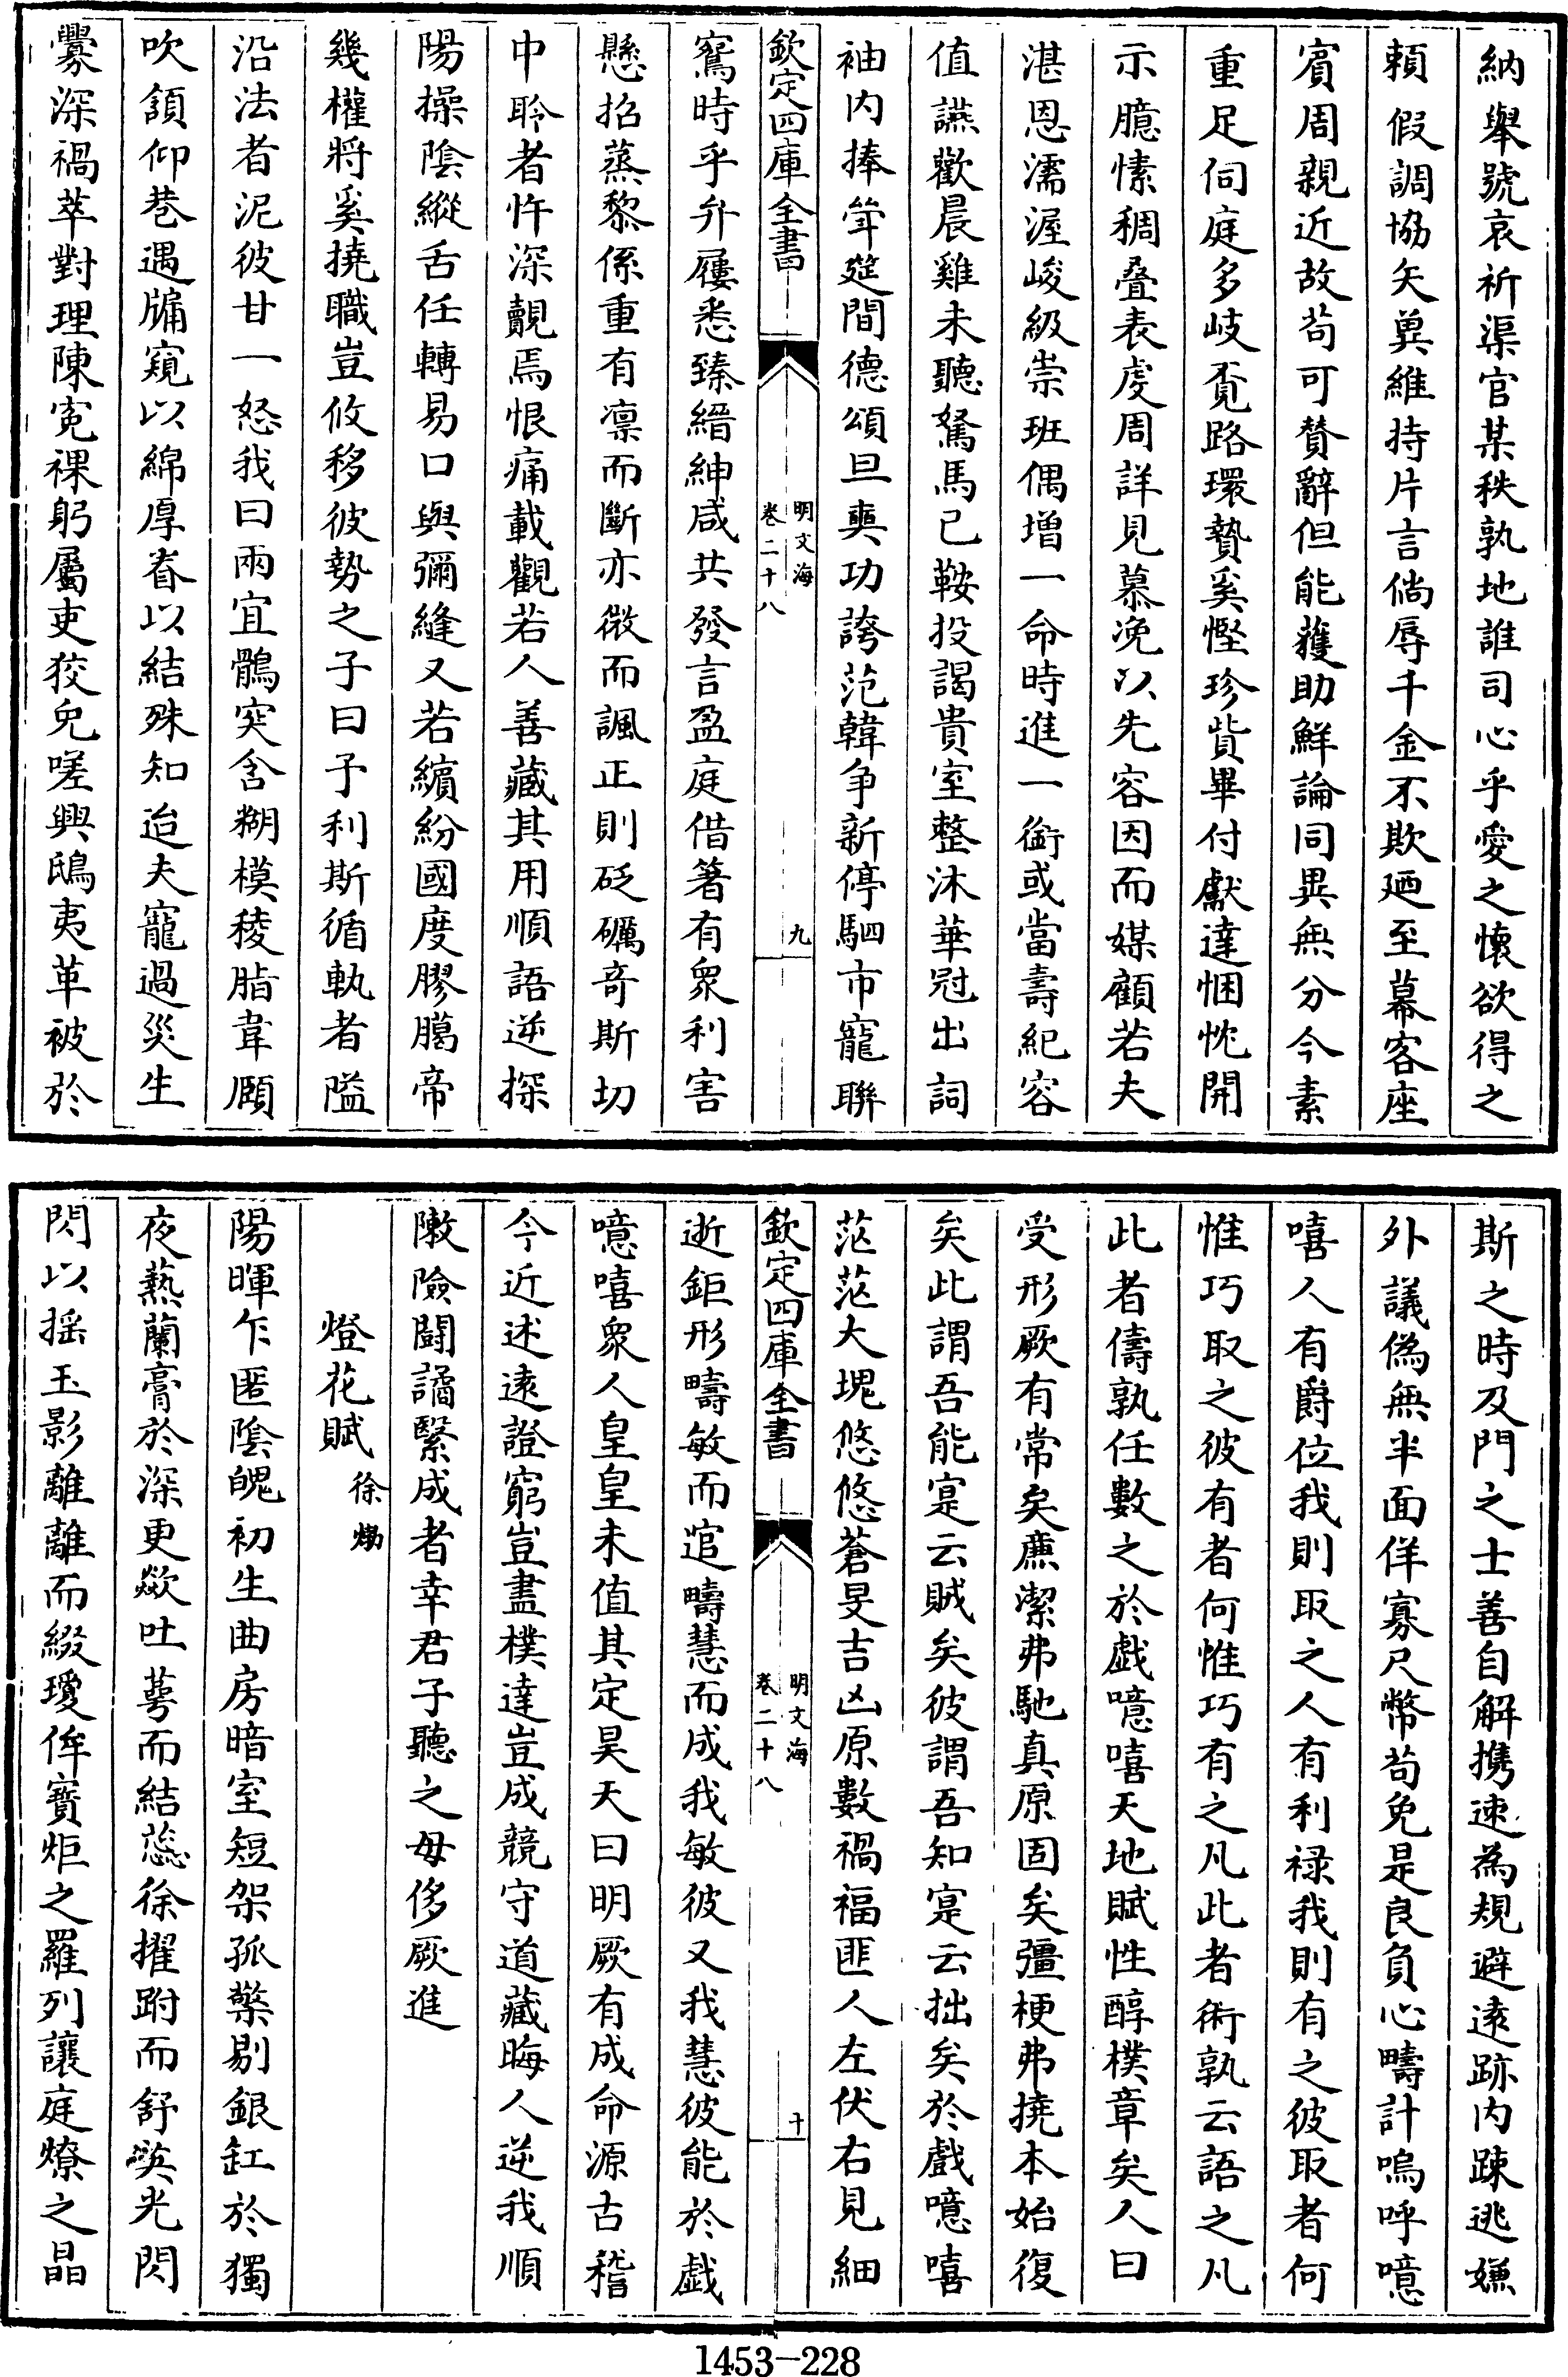 納舉號哀祈渠官某秩孰地誰司心乎愛之懷欲得之
賴假調協矢冀維持片言倘辱千金不欺廼至幕客座
賓周親近故苟可贊辭但能蒦助鮮論同異無分今素
重足伺庭多岐覔路環贄奚慳珍貲畢付獻達悃忱開
示臆愫稠叠表虔周詳見慕浼以先容因而媒顧若夫
湛恩濡渥峻級崇班偶增一命時進一銜或當壽紀容
值讌歡晨雞未聽駑馬已鞍投謁貴室整沐華冠出詞
袖内捧斝筵間德頌旦奭功誇范韓争新停駟市寵聯
欽定四庫全書
明文海
卷二十八
九
鴛時乎弁屨悉臻縉紳咸共發言盈庭借箸有衆利害
懸招蒸黎係重有凛而斷亦微而諷正則砭礪竒斯切
中聆者忤深覿焉恨痛載觀若人善藏其用順語逆探
陽操陰縱舌任轉易口與彌縫又若繽紛國度膠膈帝
幾權將奚撓職豈攸移彼勢之子曰予利斯循執者隘
沿法者泥彼甘一怒我曰兩宜鶻突含糊模稜脂韋頤
吹頷仰巷遇牖窺以綿厚眷以結殊知迨夫寵過災生
釁深禍萃對理陳寃裸躬屬吏狡兎嗟興鴟夷革被於
斯之時及門之士善自解携速為規避遠跡内踈逃嫌
外議偽無半面佯寡尺幣苟免是良負心疇計嗚呼噫
嘻人有爵位我則取之人有利禄我則有之彼取者何
惟巧取之彼有者何惟巧有之凡此者術孰云語之凡
此者儔孰任數之於戲噫嘻天地賦性醇樸章矣人曰
受形厥有常矣廉潔弗馳真原固矣彊梗弗撓本始復
矣此謂吾能寔云賊矣彼謂吾知寔云拙矣於戲噫嘻
茫茫大塊悠悠蒼旻吉凶原數禍福匪人左伏右見細
欽定四庫全書
明文海
卷二十八
十
逝鉅形疇敏而逭疇慧而成我敏彼又我慧彼能於戲
噫嘻衆人皇皇未值其定昊天曰明厥有成命源古稽
今近述遠證窮豈盡樸達豈成競守道藏晦人逆我順
敶險鬬譎緊成者幸君子聽之毋侈厥進
燈花賦徐㶿
陽暉乍匿陰魄初生曲房暗室短架孤檠剔銀缸於獨
夜爇蘭膏於深更歘吐萼而結蕊徐擢跗而舒英光閃
閃以摇玉影離離而綴瓊侔寳炬之羅列讓庭燎之晶
1453-228